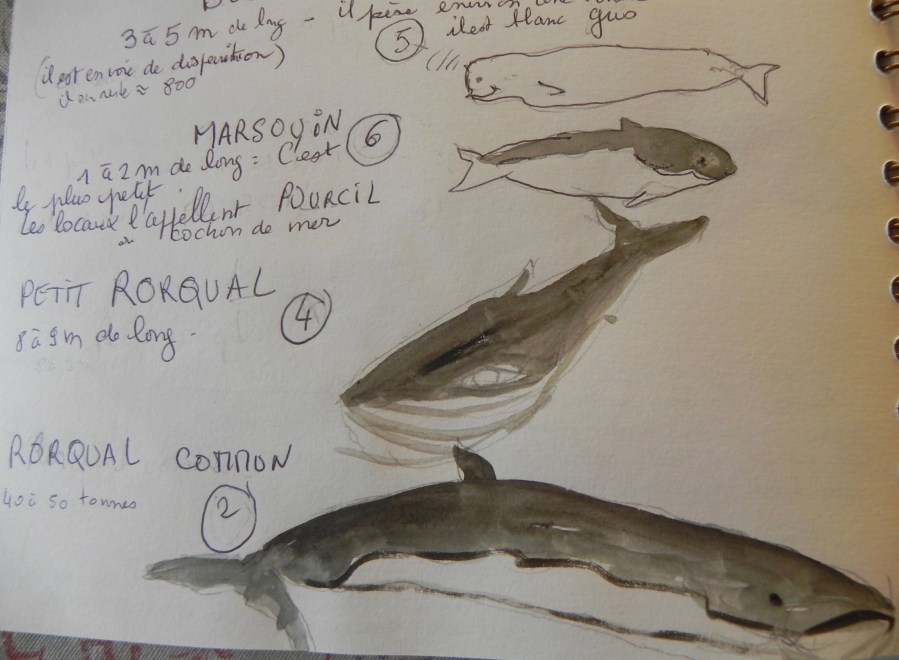 3 à 5 m de lng - il pèse environ une
(il est en voie de disparition) 5 il est blanc gris
il en reste ≈ 800
MARSOUIN 6
1 à 2 m de long : C'est
le plus petit
Les locaux l'appellent POURCIL
ou cochon de mer
PETIT RORQUAL
4
8 à 9 m de long -
RORQUAL COMMUN
40 à 50 tonnes
2